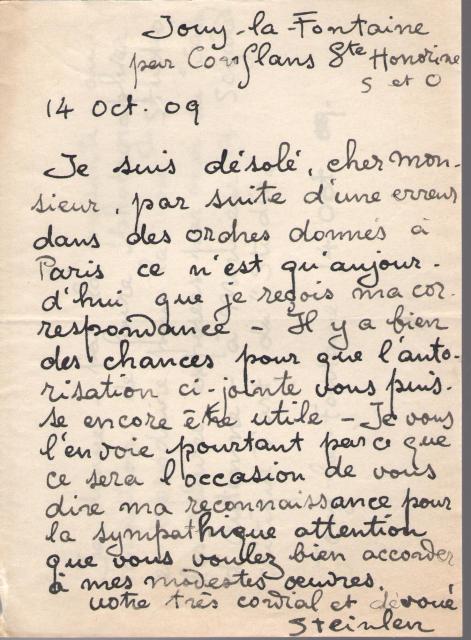 Jouy-la-Fontaine
par Conflans Ste Honorine
S et O
14 Oct. 09
Je suis désolé, cher mon-
sieur, par suite d'une erreur
dans des ordres donnés à
Paris ce n'est qu'aujour-
d'hui que je reçois ma cor-
respondance - Il y a bien
des chances pour que l'auto-
risation ci-jointe vous puis-
se encore être utile - Je vous
l'envoie pourtant parce que
ce sera l'occasion de vous
dire ma reconnaissance pour
la sympathique attention
que vous voulez bien accorder
à mes modestes œuvres.
votre très cordial et dévoué
Steinlen